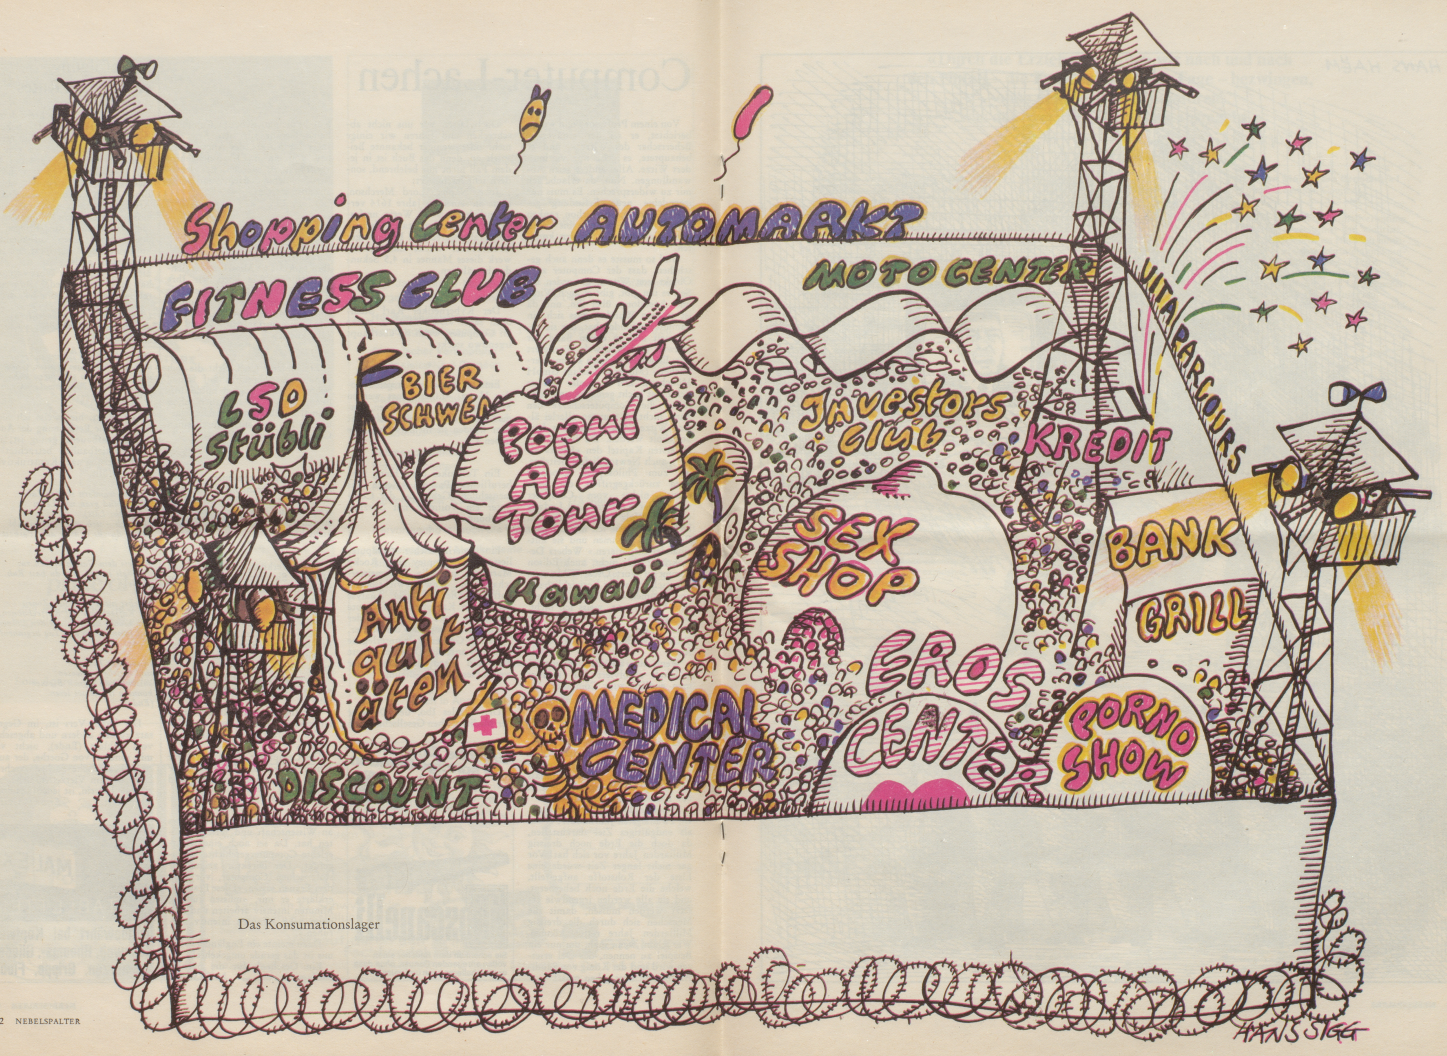 Shopping Center AUTOMARKT
FITNESS CLUB
MOTO CENTER
VITAPARCOURS
LSD
Stübli
BIER
SCHWEM
Popul
Air
Tour
Hawaii
Investors
Club
KREDIT
SEX
SHOP
BANK
GRILL
Anti
quit
äten
EROS
CENTER
PORNO
SHOW
MEDICAL
CENTER
DISCOUNT
Das Konsumationslager
2 NEBELSPALTER
HANS SIGG